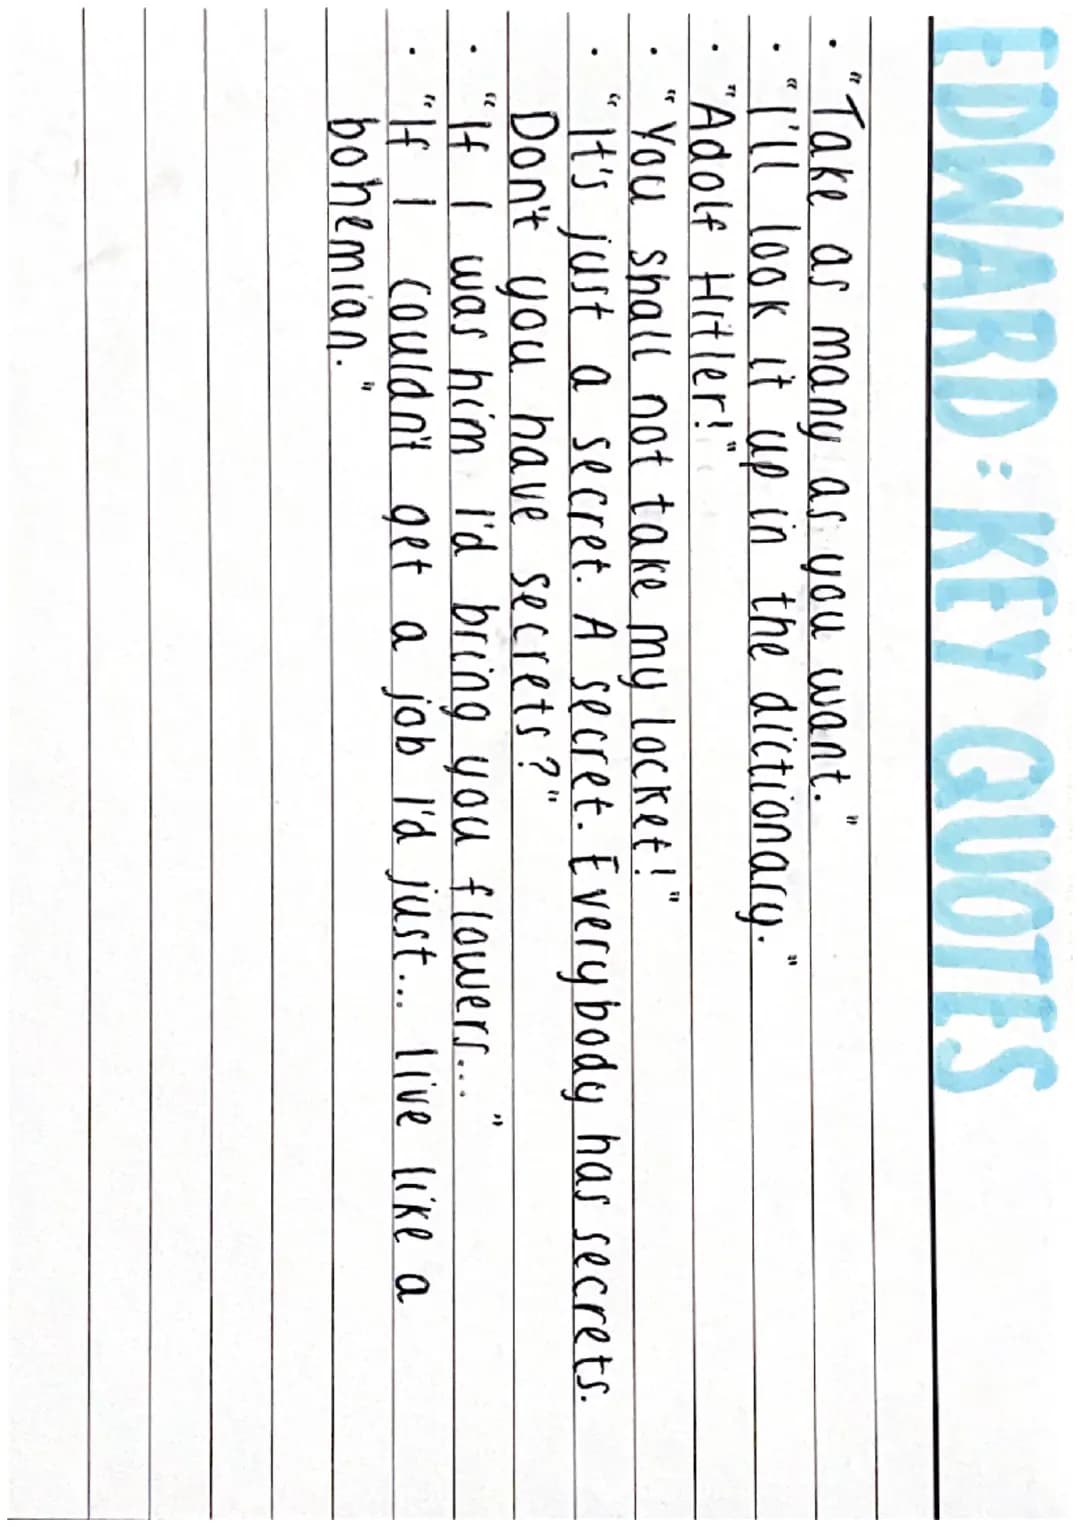 EDWARD: KEY QUOTES
• "Take as many as you want."
• "I'll look it up in the dictionary."
• "Adolf Hitler!"
• "You shall not take my locket!"
• "It's just a secret. A secret. Everybody has secrets.
Don't you have secrets?"
• "If I was him I'd bring you flowers..."
• "If I couldn't get a job I'd just... live like a
bohemian."